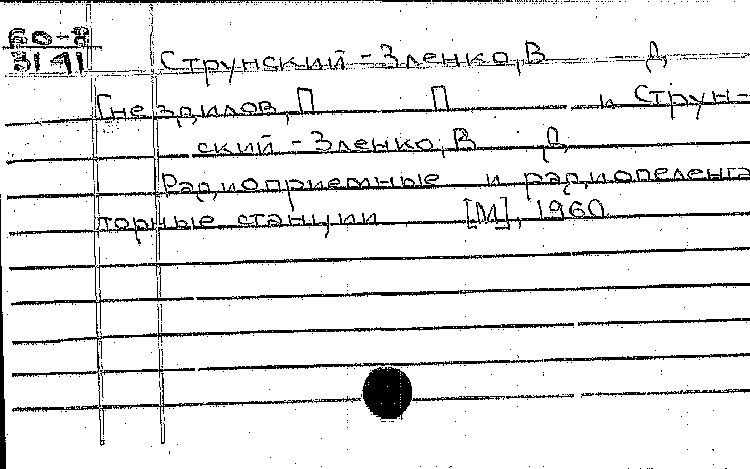 60-8
3191
Струнский-Зленко, В Д
Гнездилов, П П и Струн-
ский-Зленко, В Д
Радиоприемные и радиопеленга
торные станции [М], 1960